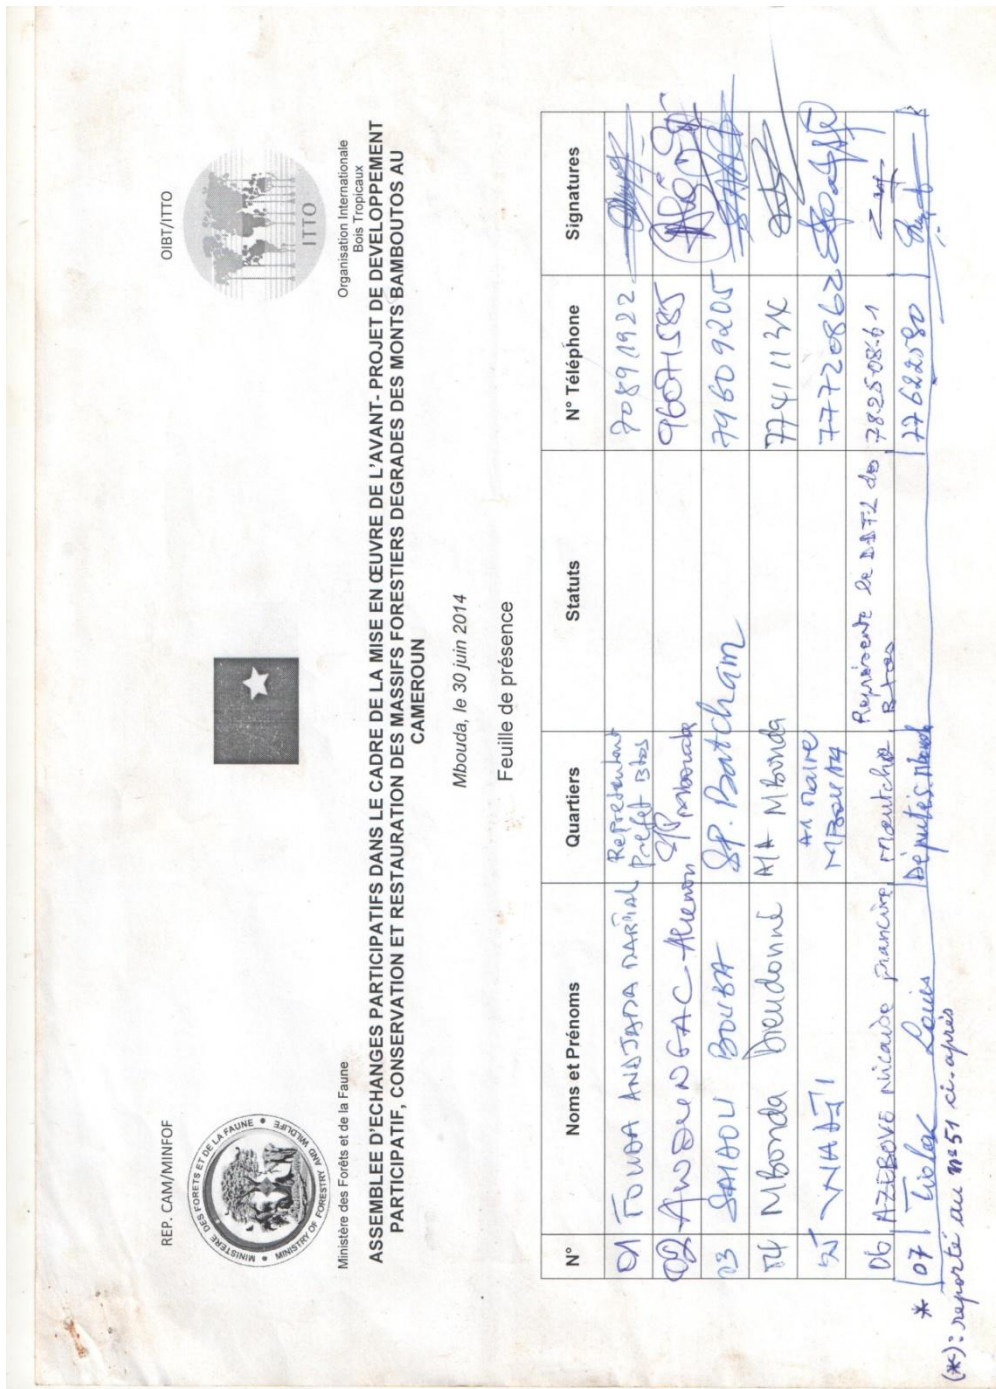 REP. CAM/MINFOF
OIBT/ITTO
MINISTERE DES FORETS ET DE LA FAUNE
MINISTRY OF FORESTRY AND WILDLIFE
ITTO
Ministère des Forêts et de la Faune
Organisation Internationale
Bois Tropicaux
ASSEMBLEE D'ECHANGES PARTICIPATIFS DANS LE CADRE DE LA MISE EN ŒUVRE DE L'AVANT- PROJET DE DEVELOPPEMENT
PARTICIPATIF, CONSERVATION ET RESTAURATION DES MASSIFS FORESTIERS DEGRADES DES MONTS BAMBOUTOS AU
CAMEROUN
Mbouda, le 30 juin 2014
Feuille de présence
N° Noms et Prénoms Quartiers Statuts N° Téléphone Signatures
01 Représentant Préfet Btos 70891922
02 S/P Mbouda 96071585
03 SAHAOU BOUBA SP. Batcham 79609205
04 Mbonda Dieudonné Mbonda
05 77720862
06 AZEBOVE Nicaise Francine Représente le des Btos 7825-08-61
* 07 Louis Député 77622580
(*): reporté au n° 51 ci-après